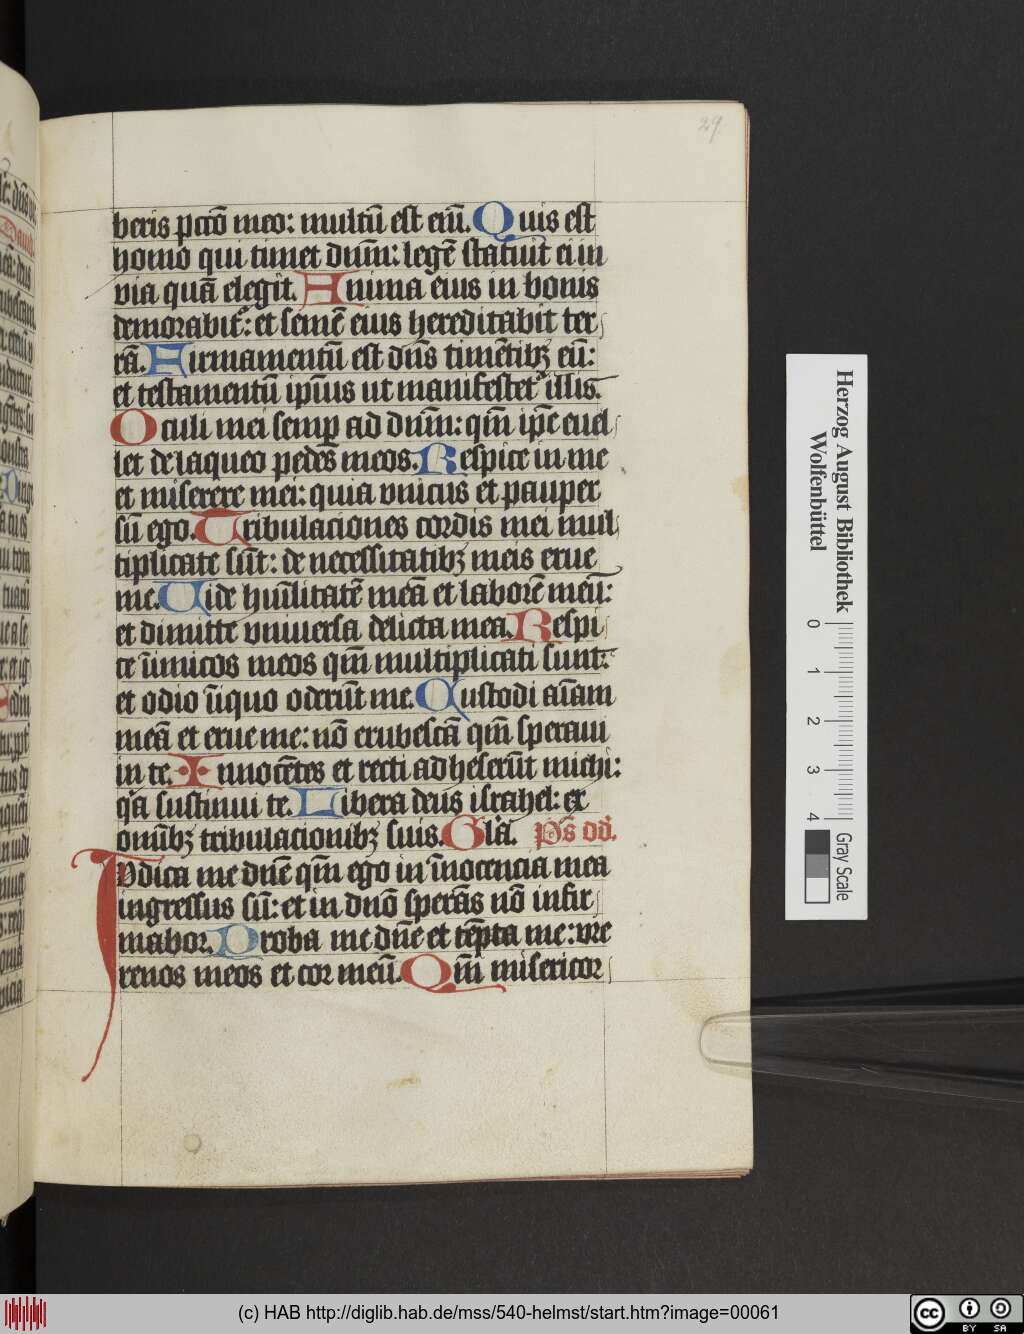 29
beris pctō meo: multū est eni̅. Quis est
homo qui timet dnm̅: legē statuit ei in
via quā elegit. Anima eius in bonis
demorabit᷑: et semē eius hereditabit ter
rā. Firmamentū est dn̄s timētibꝫ eū:
et testamentū ipīus ut manifestet᷑ illis.
Oculi mei semꝑ ad dnm̅: qm̅ ip̄e euel
let de laqueo pedes meos. Respice in me
et miserere mei: quia vnicus et pauper
sū ego. Tribulaciones cordis mei mul
tiplicate su̅t: de necessitatibꝫ meis erue
me. Uide hu̅ilitatē meā et laborē meū:
et dimitte vniuersa delicta mea. Respi
ce i̅imicos meos qm̅ multiplicati sunt:
et odio i̅iquo oderūt me. Custodi ai̅am
meā et erue me: nō erubescā qm̅ speraui
in te. Innocētes et recti adheserūt michi:
qͥa sustinui te. Libera deus israhel: ex
omi̅bꝫ tribulacionibꝫ suis. Glā. Ps̄ dd̄.
Iudica me dnē qm̅ ego in i̅nocencia mea
ingressus sū: et in dnō sperās nō infir
mabor. Proba me dnē et tēpta me: vre
renes meos et cor meū. Qm̅ misericor
Herzog August Bibliothek
Wolfenbüttel
0 1 2 3 4
Gray Scale
(c) HAB http://diglib.hab.de/mss/540-helmst/start.htm?image=00061
cc BY SA